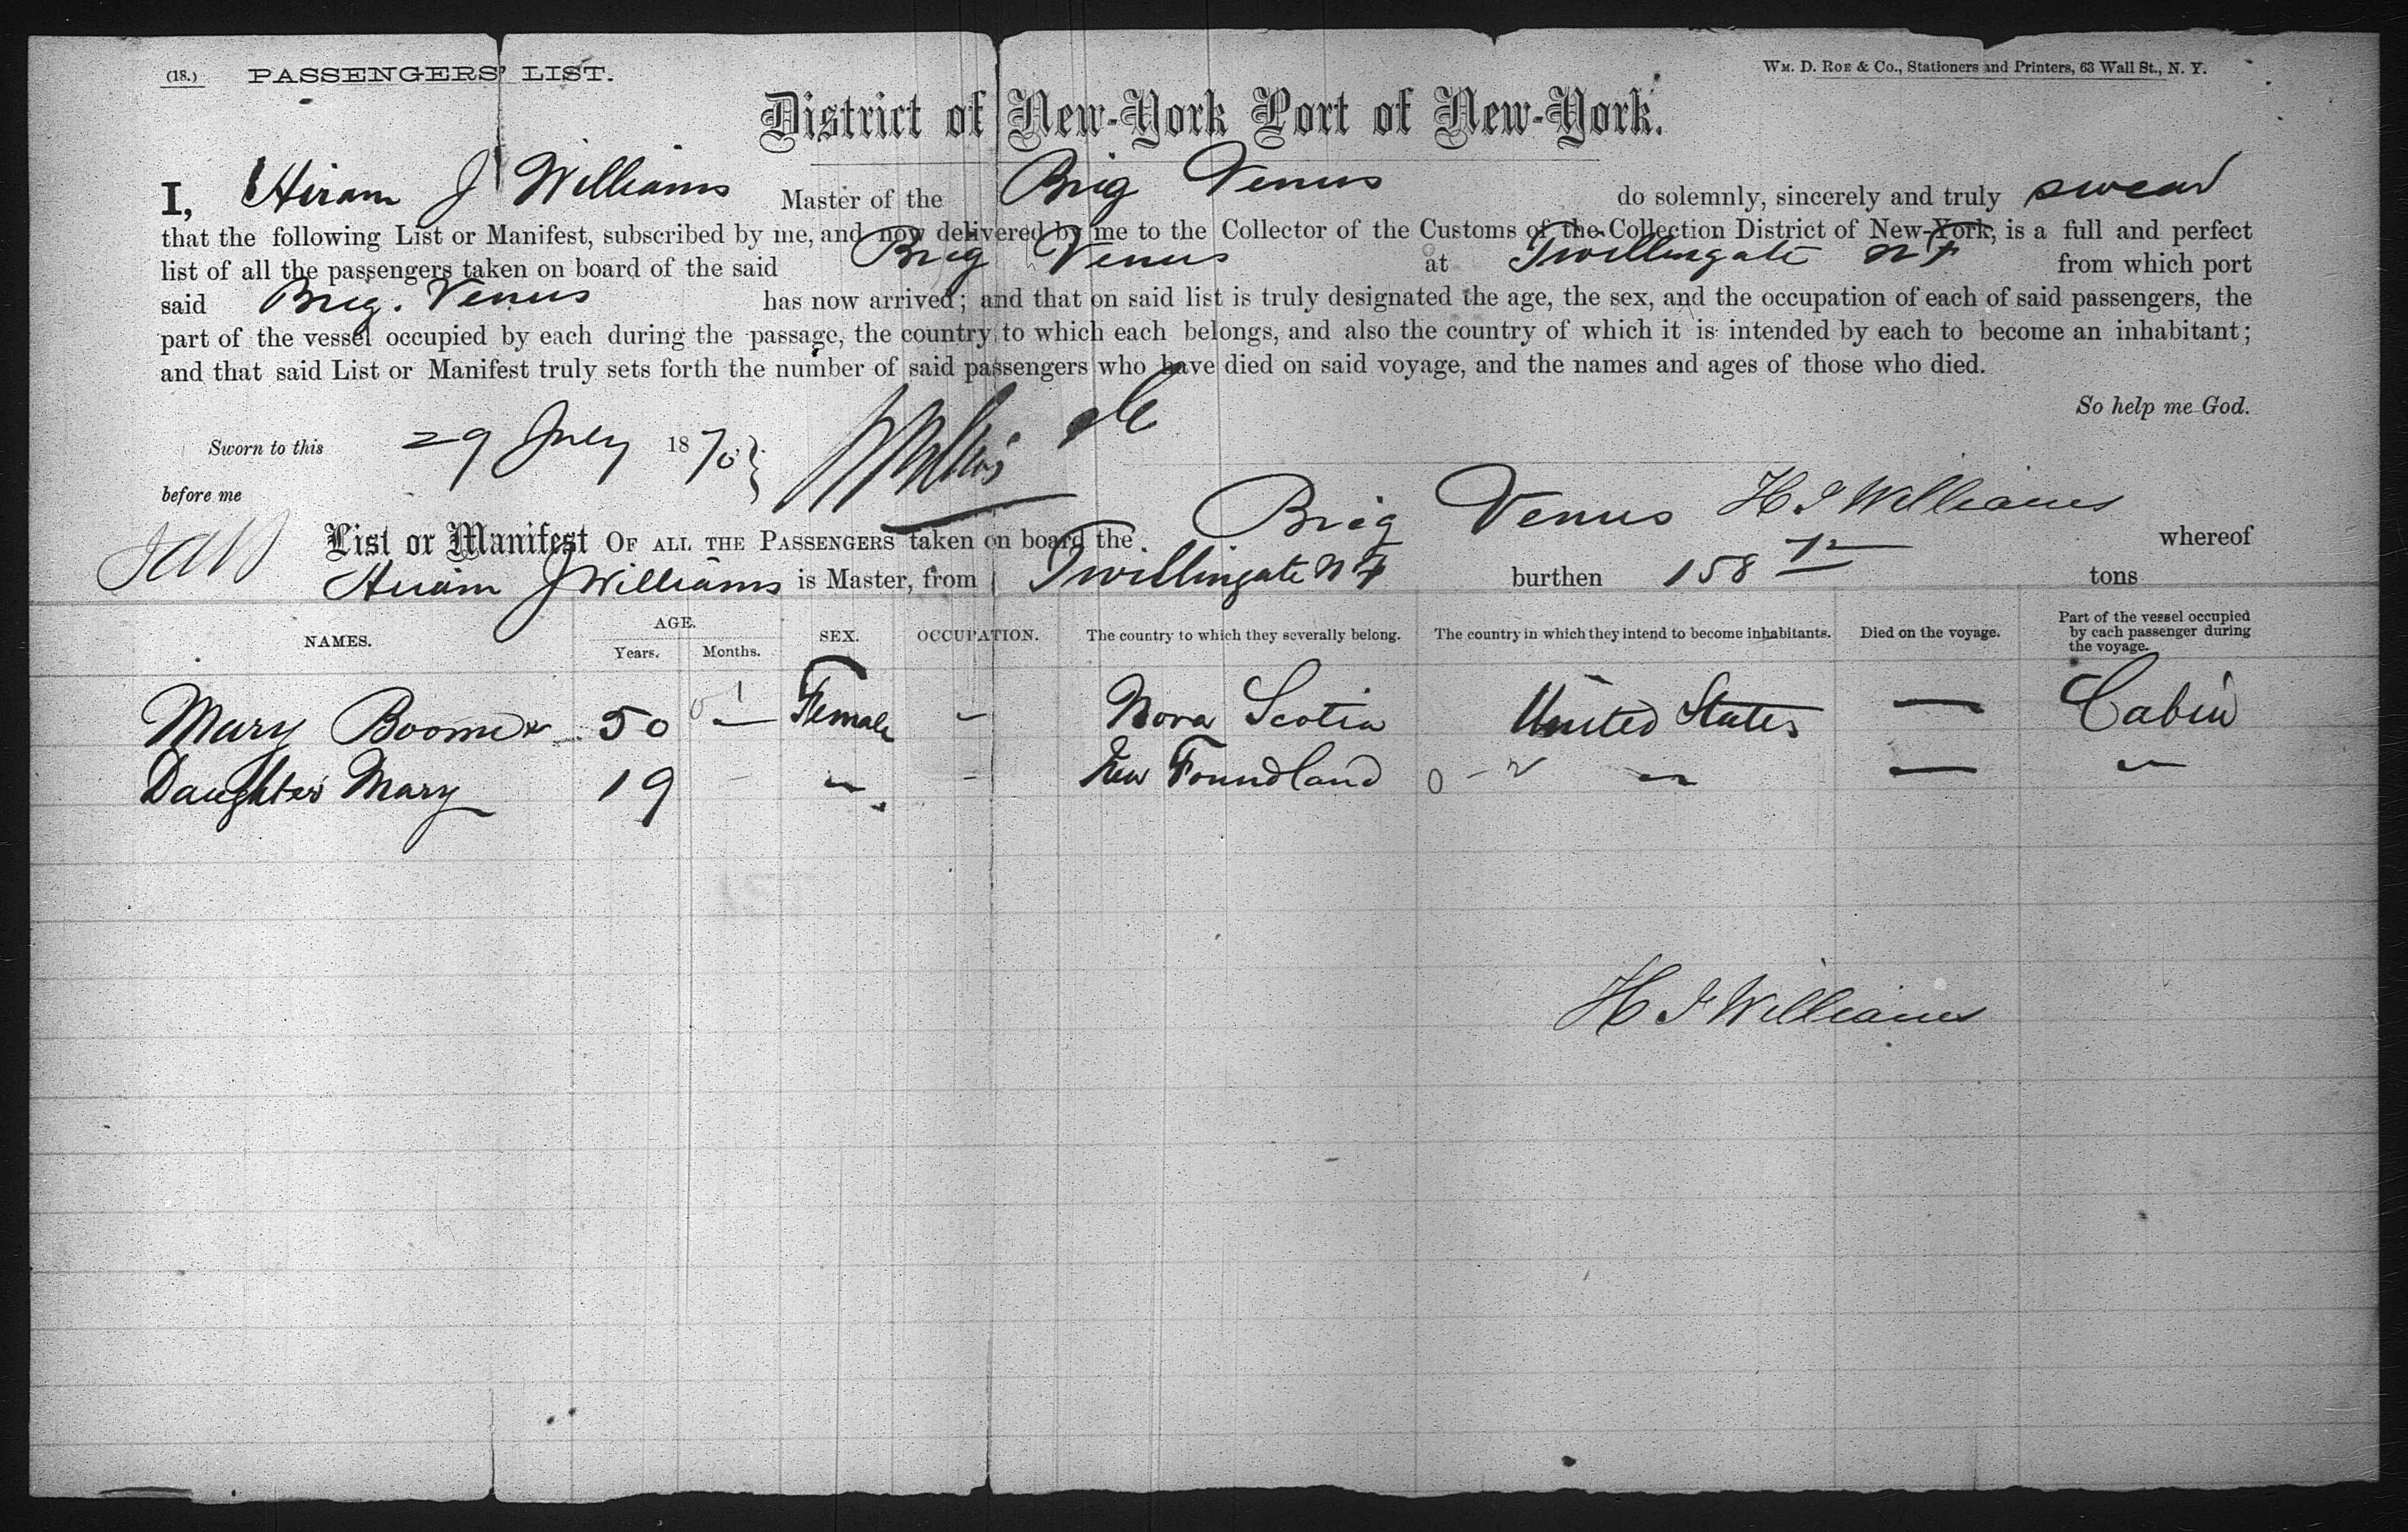 (18.) PASSENGERS' LIST. Wm. D. Roe & Co., Stationers and Printers, 63 Wall St., N. Y.
District of New-York Port of New-York.
I, Hiram J Williams Master of the Brig Venus do solemnly, sincerely and truly swear
that the following List or Manifest, subscribed by me, and now delivered by me to the Collector of the Customs of the Collection District of New-York, is a full and perfect
list of all the passengers taken on board of the said Brig Venus at Twillingate N F from which port
said Brig. Venus has now arrived; and that on said list is truly designated the age, the sex, and the occupation of each of said passengers, the
part of the vessel occupied by each during the passage, the country to which each belongs, and also the country of which it is intended by each to become an inhabitant;
and that said List or Manifest truly sets forth the number of said passengers who have died on said voyage, and the names and ages of those who died.
So help me God.
Sworn to this 29 July 1870
before me
H J Williams
List or Manifest OF ALL THE PASSENGERS taken on board the Brig Venus whereof
Hiram J Williams is Master, from Twillingate N F burthen 158 tons
NAMES. AGE. Years. Months. SEX. OCCUPATION. The country to which they severally belong. The country in which they intend to become inhabitants. Died on the voyage. Part of the vessel occupied by each passenger during the voyage.
Mary Boomer 50 — Female " Nova Scotia United States — Cabin
Daughter Mary 19 - " - New Foundland " — "
H J Williams